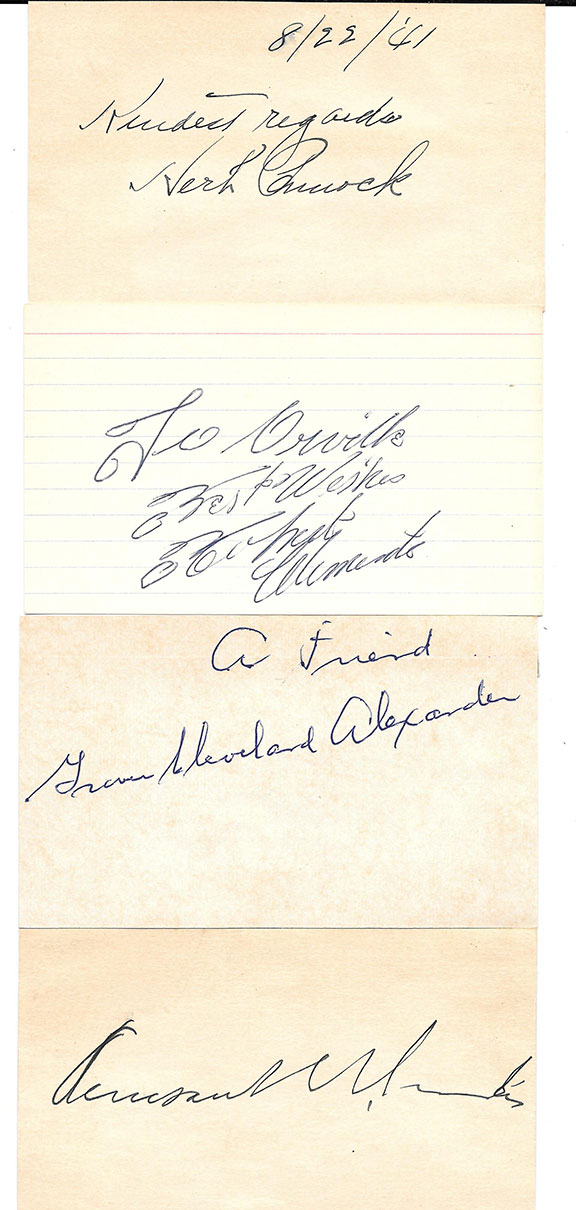 8/22/'41
Kindest regards
Herb Pennock
To Orville
Best Wishes
Roberto
Clemente
A Friend
Grover Cleveland Alexander